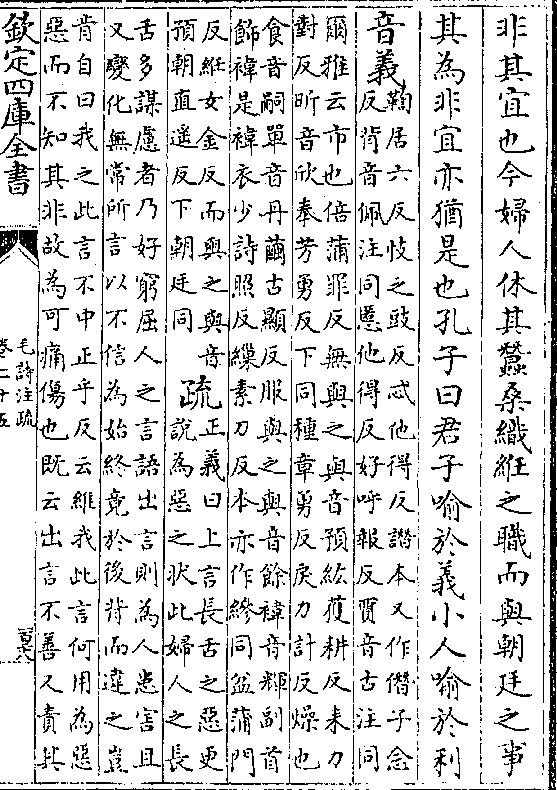 非其宜也今婦人休其蠶桑織紝之職而與朝廷之事
其為非宜亦猶是也孔子曰君子喻於義小人喻於利
音義
鞫居六反忮之豉反忒他得反譖本又作僭子念
反背音佩注同慝他得反好呼報反賈音古注同
爾雅云市也倍蒲罪反無與之與音預紘獲耕反耒力
對反昕音欣奉芳勇反下同種章勇反戾力計反燥也
食音嗣單音丹繭古顯反服與之與音餘褘音輝副首
飾褘是褘衣少詩照反繅素刀反本亦作繰同盆蒲門
反紝女金反而與之與音
預朝直遥反下朝廷同
疏
正義曰上言長舌之惡更
說為惡之狀此婦人之長
舌多謀慮者乃好窮屈人之言語出言則為人患害且
又變化無常所言以不信為始終竟於後背而違之豈
肯自曰我之此言不中正乎反云維我此言何用為惡
惡而不知其非故為可痛傷也既云出言不善又責其
欽定四庫全書
毛詩注疏
卷二十五